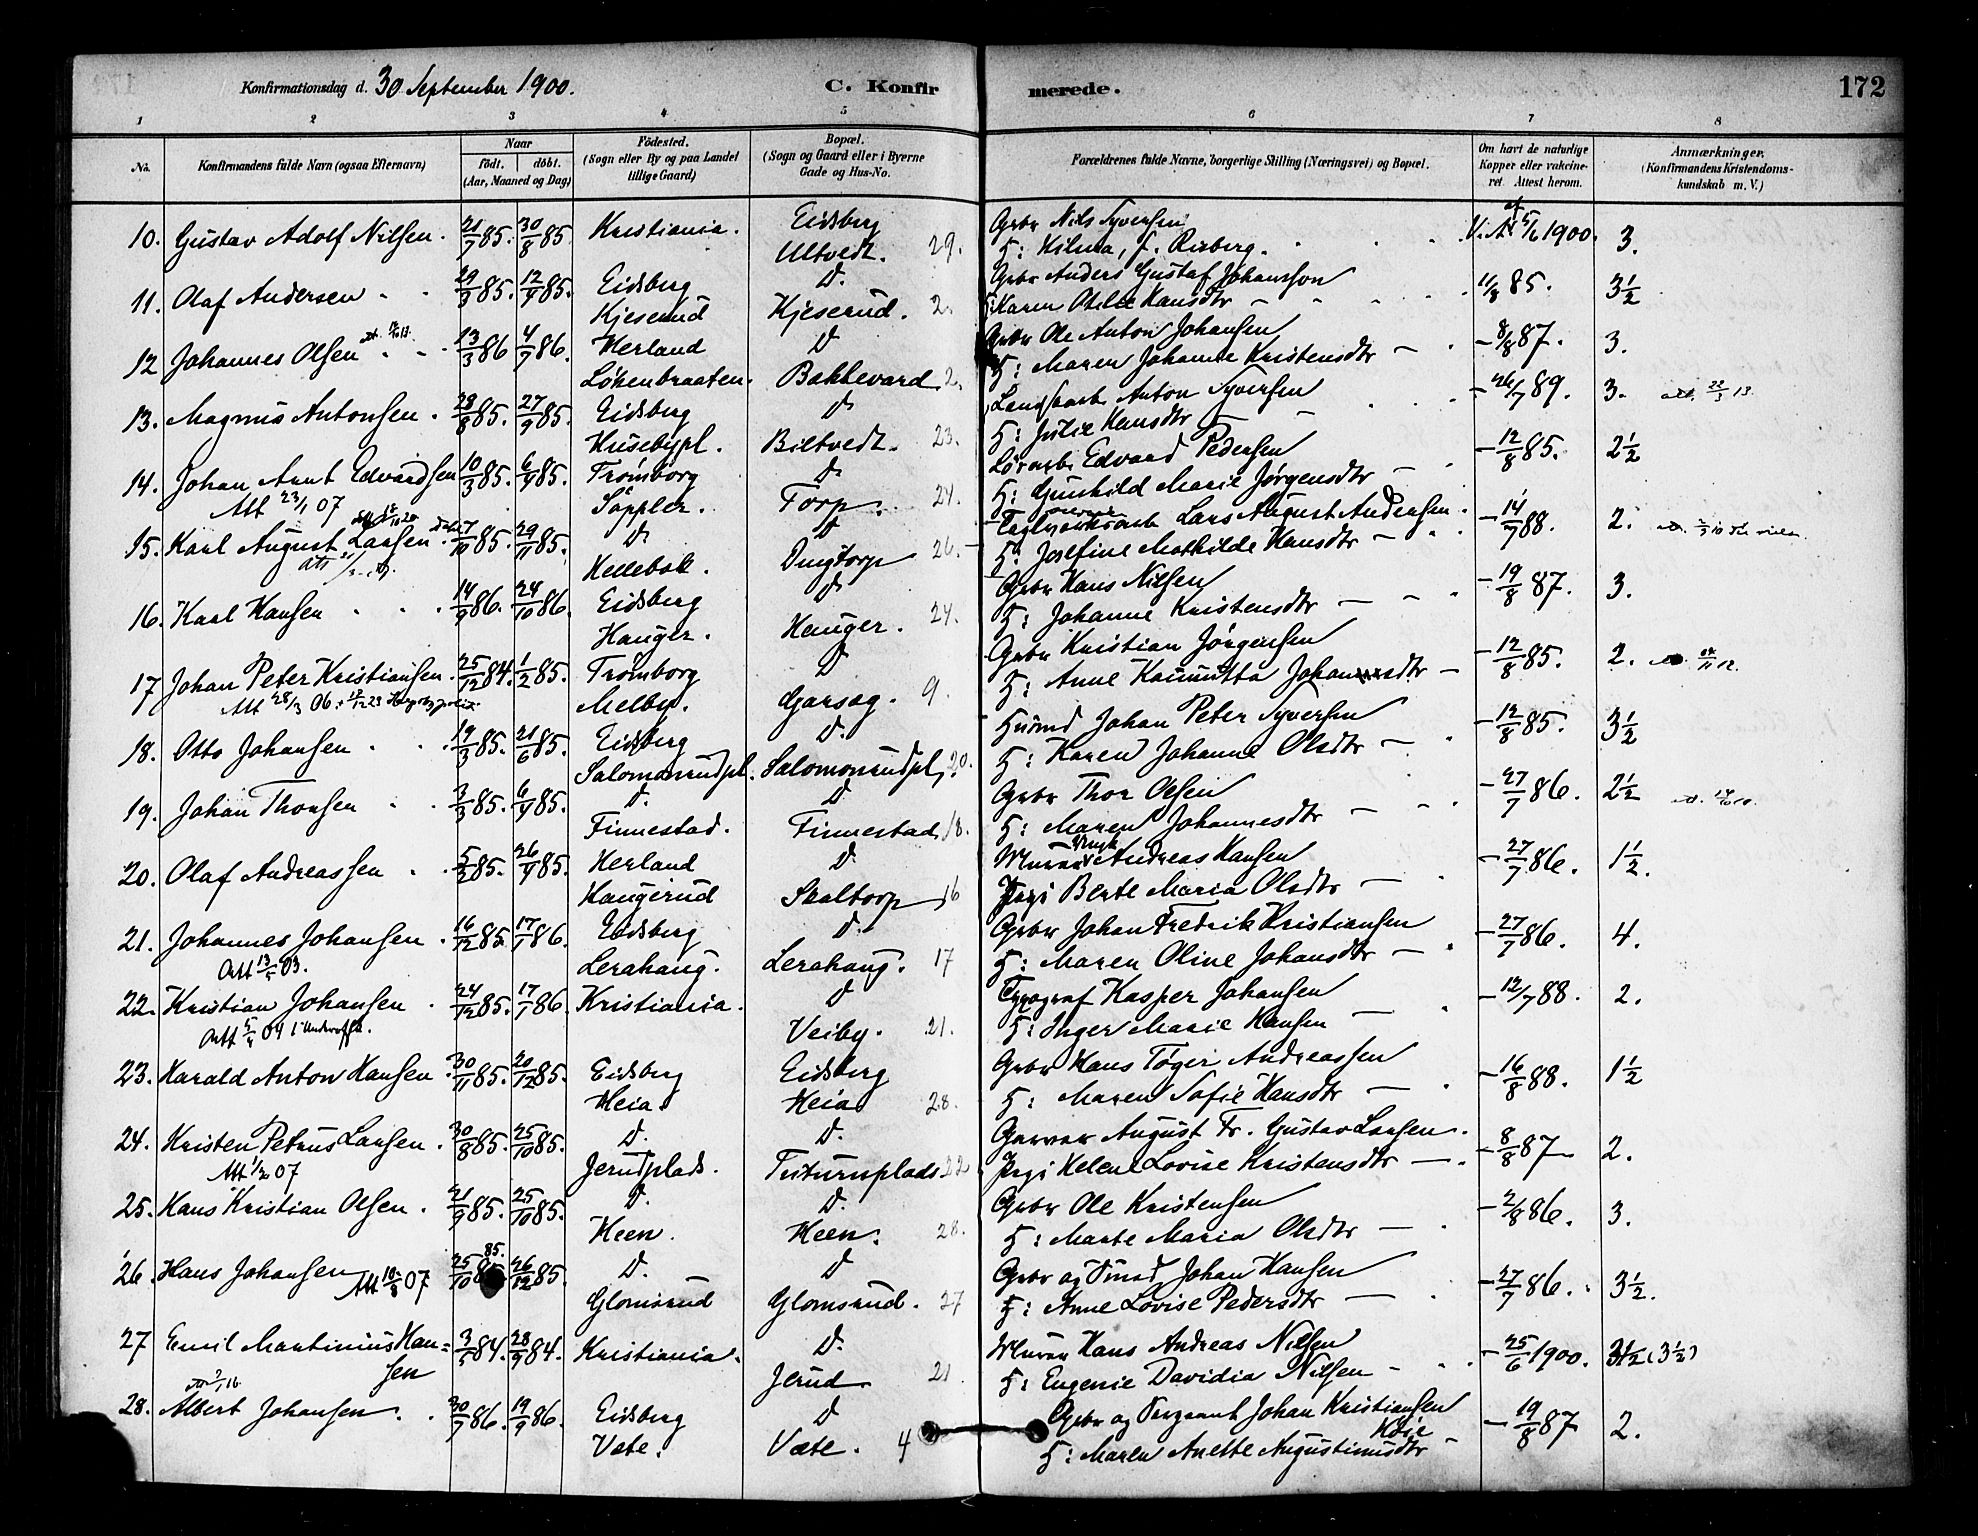 Konfirmationsdag d. 30 September 1900. C. Konfirmerede. 172
1 2 3 4 5 6 7 8
No. Konfirmandens fulde Navn (ogsaa Efternavn) Naar født. døbt. (Aar, Maaned og Dag) Fødested. (Sogn eller By og paa Landet tillige Gaard) Bopæl. (Sogn og Gaard eller i Byerne Gade og Hus-No. Forældrenes fulde Navne, borgerlige Stilling (Næringsvei) og Bopæl. Om havt de naturlige Kopper eller vakcineret. Attest herom. Anmærkninger. (Konfirmandens Kristendomskundskab m. V.)
10. Gustav Adolf Nilsen. 21/7 85. 30/8 85 Kristiania. Eidsberg Gbr Nils Syversen V. A. 5/6 1900. 3.
Ultvedt. 29. H: Hilma, f. Risberg.
11. Olaf Andersen 29/3 85. 12/4 85. Eidsberg D. Gbr Anders Gustaf Johansson 11/8 85. 3½
Kjeserud Kjeserud. 2. H: Karen Otilie Hansdtr
12 Johannes Olsen 13/3 86 4/7 86. Herland D Gbr Ole Anton Johansen 8/8 87. 3.
Lökenbraaten. Bakkevard 2. H: Maren Johanne Kristensdtr
13. Magnus Antonsen. 28/8 85. 27/9 85. Eidsberg D Landsarb. Anton Syversen 26/7 89. 3. att. 22/3 13.
Husebypl. Biltvedt. 23. H: Julie Hansdtr
14. Johan Arnt Edvardsen 10/3 85. 6/4 85. Trømborg D Edvard Pedersen 12/8 85. 2½
Att 23/1 07 Såppler. Torp. 24. H: Gunhild Marie Jørgensdtr
15. Karl August Larsen 7/10 85. 29/11 85. D D Lars August Andersen. 14/7 88. 2.
Hellebæk. Dingtorp 26. H: Josefine Mathilde Hansdtr
16. Karl Hansen 14/9 86. 24/10 86. Eidsberg D Gbr Hans Nilsen 19/8 87. 3.
Hauger. Hauger. 24. H: Johanne Kristensdtr
17 Johan Peter Kristiansen. 25/12 84. 1/2 85. Trømborg D Gbr Kristian Jørgensen 12/8 85. 2.
Att 28/3 06. Melby. Garseg. 9. H: Anne Johannesdtr
18. Otto Johansen 19/3 85. 21/6 85. Eidsberg D. Husmd Johan Peter Syversen 12/8 85. 3½
Salomonrudpl. Salomonrudpl. 20. H: Karen Johanne Olsdtr
19. Johan Thorsen 3/3 85. 6/4 85. D. D Gbr Thor Olsen 27/7 86. 2½
Finnestad. Finnestad. 18. H: Maren Johannesdtr
20. Olaf Andreassen 5/2 85. 26/4 85. Herland D Murer Andreas Hansen 27/7 86. 1½.
Haugerud Skaltorp 16 Pigi Berte Maria Olsdtr
21. Johannes Johansen. 16/12 85. 17/1 86. Eidsberg D. Gbr Johan Fredrik Kristiansen 27/7 86. 4.
Att 13/5 03. Lerahaug. Lerahaug. 17 H: Maren Oline Johansdtr
22. Kristian Johansen. 24/12 85. 17/1 86. Kristiania. D Typograf Kasper Johansen 12/7 88. 2.
Veiby. 21. H: Inger Marie Hansen
23. Harald Anton Hansen. 30/11 85. 20/12 85. Eidsberg Eidsberg Gbr Hans Tøger Andreassen 16/8 88. 1½
Heia. Heia 28. H: Maren Sofie Hansdtr
24. Kristen Petrus Larsen. 30/8 85. 25/10 85. D. D. Garver August Fr. Gustav Larsen. 8/8 87 2.
Att 1/2 07 Jerudplads. Tuturuplads 22 Pigi Helene Lovise Kristensdtr
25. Hans Kristian Olsen. 21/9 85. 25/10 85. D. D. Gbr Ole Kristensen 2/8 86. 3.
Heen. Heen. 28. H: Marte Maria Olsdtr
26. Hans Johansen 25/10 85. 26/12 85. D. D Gbr og Smed Johan Hansen 27/7 86. 3½.
Att 10/8 07 Glomsrud Glomsrud. 27 H: Anne Lovise Pedersdtr
27 Emil Martinius Han= 3/5 84. 28/9 84. Kristiania. D. Murer Hans Andreas Nilsen 25/6 1900. 3½ (3½)
sen Jerud 21 H: Eugenie Davidia Nilsen
28. Albert Johansen. 30/7 86. 19/9 86. Eidsberg D Gbr og Sergeant Johan Kristiansen 19/8 87 2.
Væte. Væte. 4 H: Maren Anette Augustinusdtr